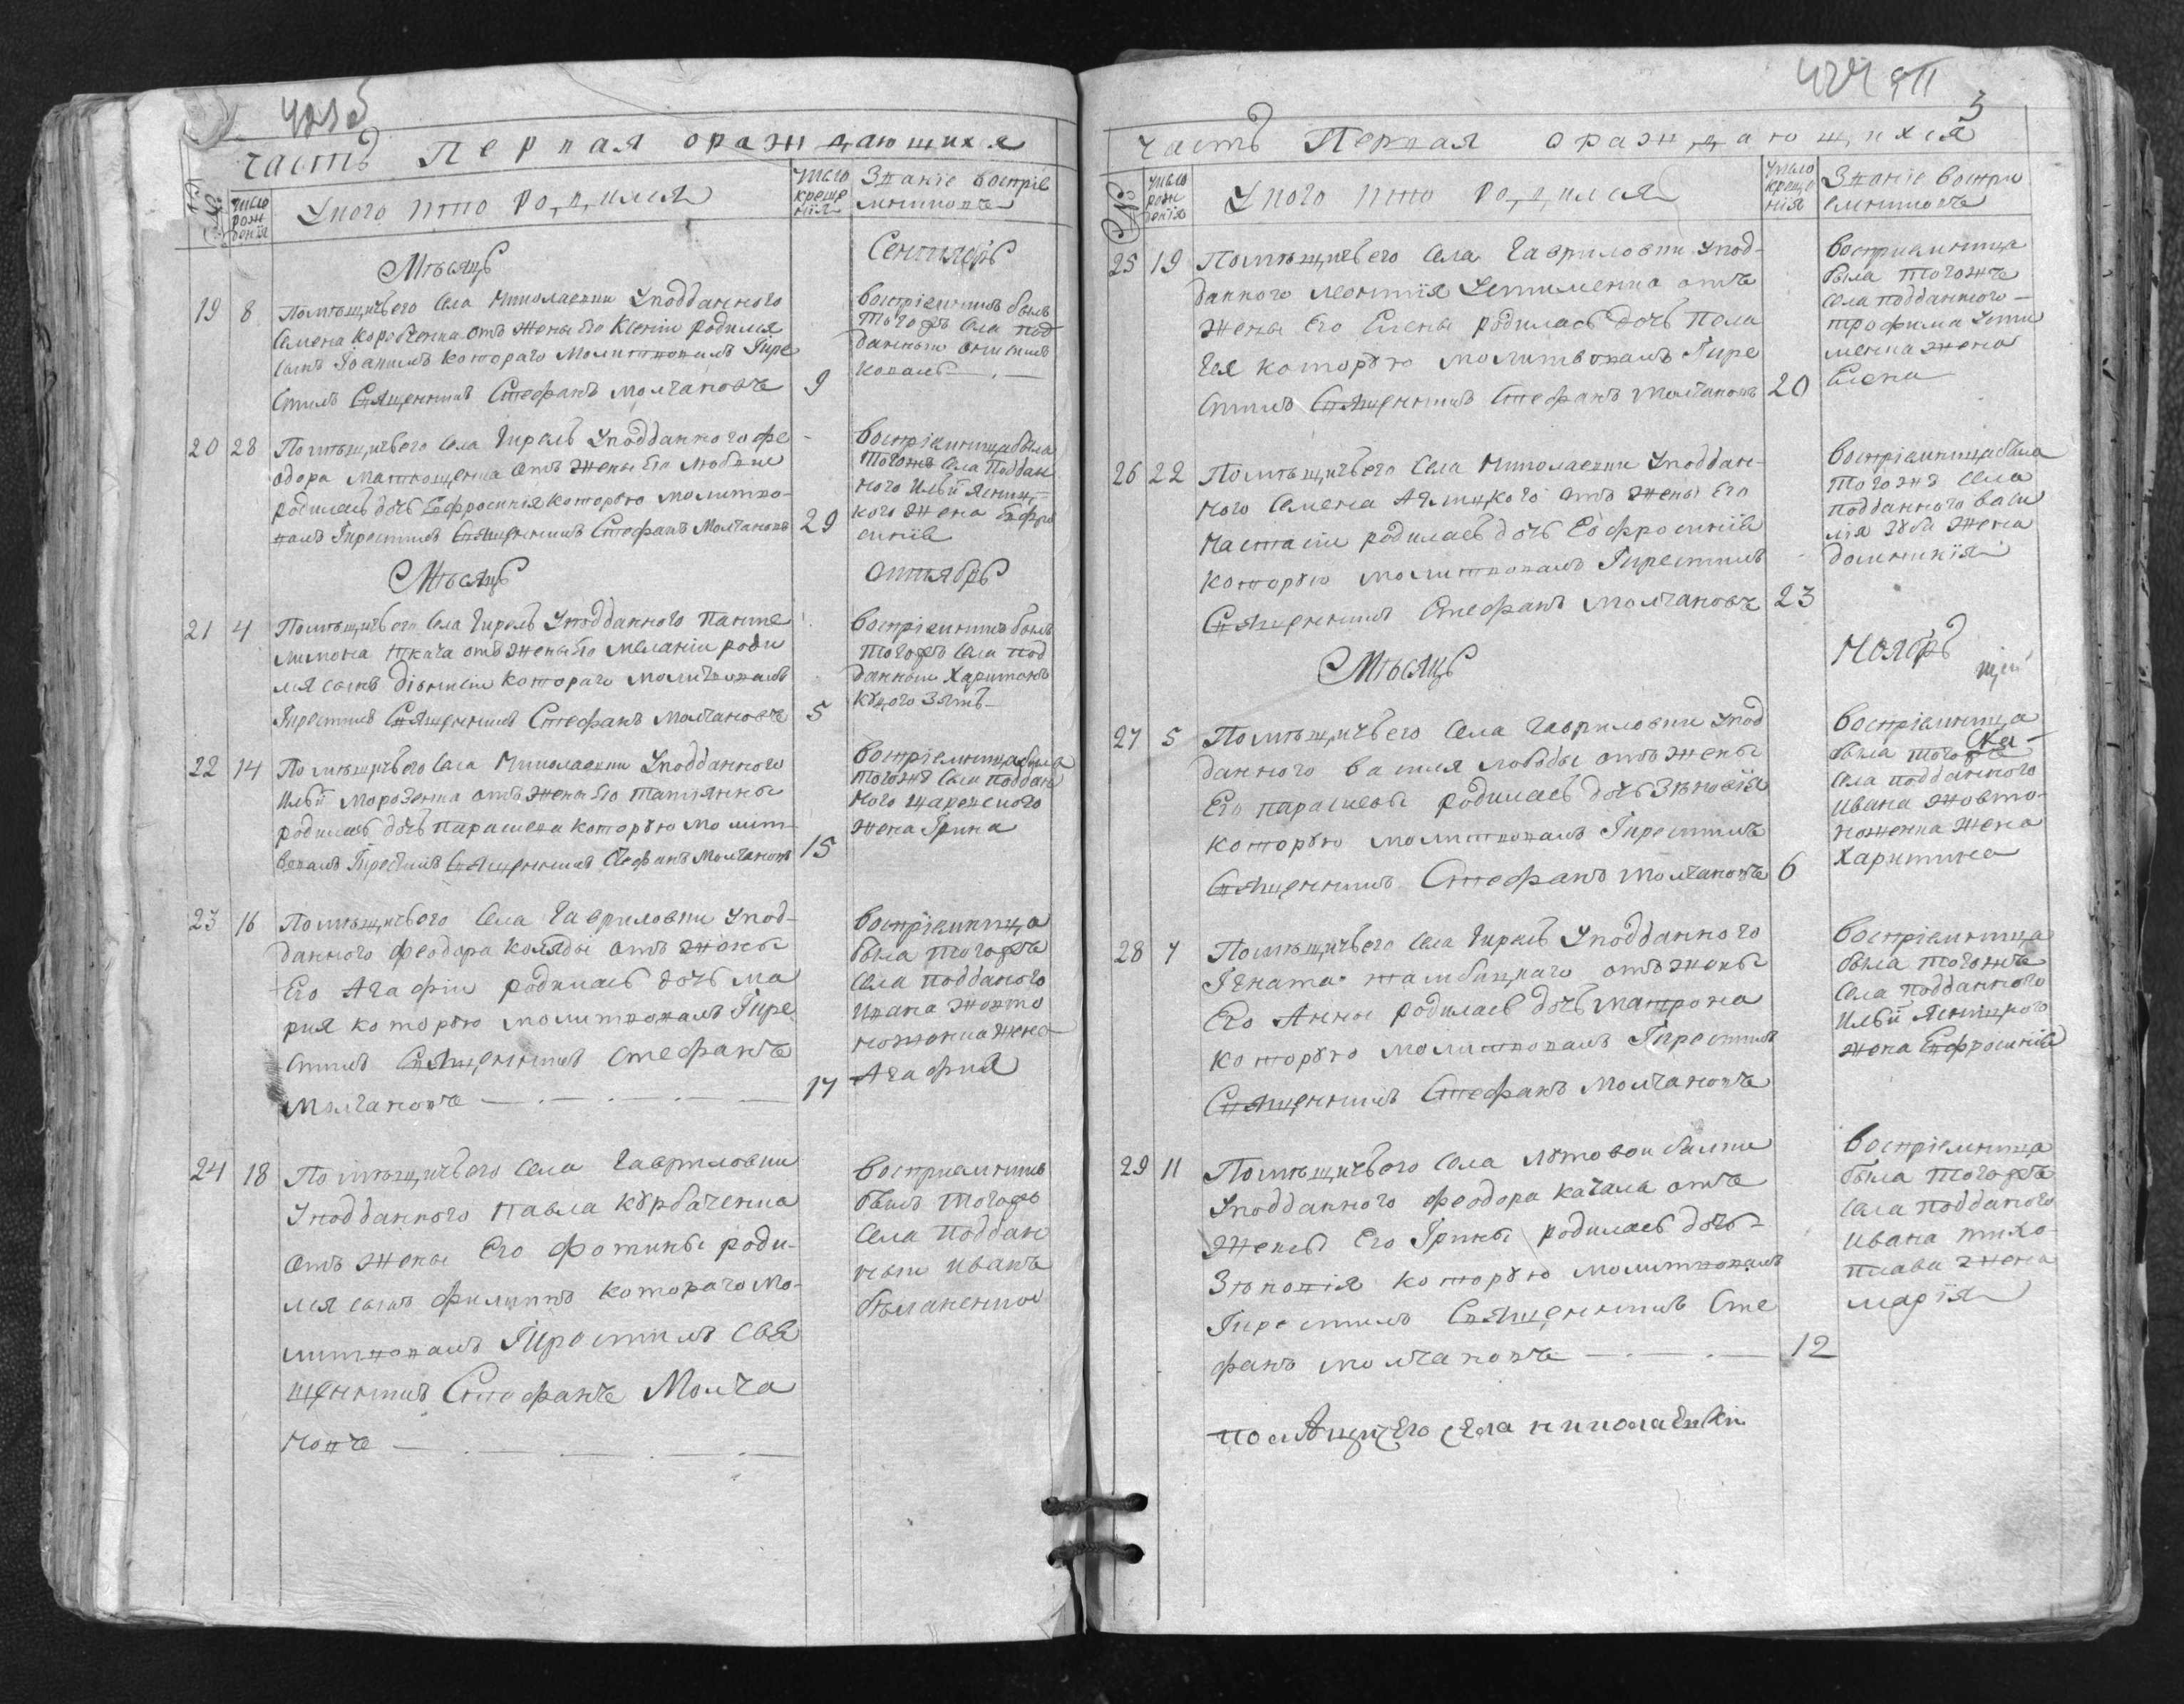 часть Первая ораждающихся
№
число рождения
У кого кто родился
число крещения
Звание восприемниковъ
Мѣсяцъ Сентябрь
19 8 Помѣщичьего села Николаевки У подданного
Семена Коробченка отъ жены Его Ксеніи родился
сынъ Іоаникъ котораго молитвовалъ Їкре
стилъ Священникъ Стефанъ Молчановъ 9
Восприемникъ былъ
тогожъ села под
данный
20 28 Помѣщичьего села Гиревъ У подданного фе
одора Матющенка отъ жены Его Любвии
родилась дочь Евфросинія которую молитво
валъ Їкрестилъ Священникъ Стефанъ Молчановъ 29
Воспріемница была
тогожъ села поддан
ного Ильи Ясниц
кого жена Евфро
синія
Мѣсяцъ Октябрь
21 4 Помѣщичьего села Гиревъ У подданного Панте
лимона Ткача отъ жены Его Меланіи роди
лся сынъ Діонисій котораго молитвовалъ
Їкрестилъ Священникъ Стефанъ Молчановъ 5
Воспріемникъ былъ
тогожъ села под
данный Харитонъ
зять
22 14 Помѣщичьего села Николаевки У подданного
Ильи Морозенка отъ жены Его Татіянны
родилась дочь Параскева которую молит
вовалъ Їкрестилъ Священникъ Стефанъ Молчановъ 15
Воспріемница была
тогожъ села поддан
ного
жена Їрина
23 16 Помѣщичьего села Гавриловки У под-
данного Феодора Коляды отъ жены
Его Агафіи родилась дочь Ма
рия которую молитвовалъ Їкре
стилъ Священникъ Стефанъ
Молчановъ 17
Воспріемница
была тогожъ
села подданого
Ивана Жовто
ноженка жена
Агафия
24 18 Помѣщичьего села Гавриловки
У подданного Павла Курбаченка
отъ жены Его Фотины роди-
лся сынъ Филиппъ котораго мо-
литвовалъ Їкрестилъ Свя
щенникъ Стефанъ Молча
новъ
Восприемникъ
былъ тогожъ
села поддан
ный Иванъ
3
часть Первая ораждающихся
№
число рождения
У кого кто родился
число крещения
Звание восприемниковъ
25 19 Помѣщичьего села Гавриловки У под-
данного Леонтия Устименка отъ
жены Его Елены родилась дочь Пела
гея которую молитвовалъ Їкре
стилъ Священникъ Стефанъ Молчановъ 20
Восприемница
была тогожъ
села подданного
трофима Усти
менка жена
Елена
26 22 Помѣщичьего села Николаевки У поддан-
ного Семена отъ жены Его
Настасіи родилась дочь Евфросинія
которую молитвовалъ Їкрестилъ
Священникъ Стефанъ Молчановъ 23
Воспріемница была
тогожъ села
подданного Васи
лія Зуба жена
Домникія
Мѣсяцъ Ноябрь
27 5 Помѣщичьего села Гавриловки У под
данного Василя Лободы отъ жены
Его Параскевы родилась дочь Зѣновія
которую молитвовалъ Їкрестилъ
Священникъ Стефанъ Молчановъ 6
Воспріемница
была тогожъ
села подданного
Ивана Жовто-
ноженка жена
Харитина
28 7 Помѣщичьего села Гиревъ У подданного
Ігната отъ жены
Его Анны родилась дочь Матрона
которую молитвовалъ Їкрестилъ
Священникъ Стефанъ Молчановъ
Воспріемница
была тогожъ
села подданного
Ильи Ясницкого
жена Евфросинія
29 11 Помѣщичьего села Лутовой балки
У подданного Феодора Качала отъ
жены Его Їрины родилась дочь
Зѣновія которую молитвовалъ
Їкрестилъ Священникъ Сте
фанъ Молчановъ 12
Воспріемница
была тогожъ
села подданого
Ивана
жена
Марія
Помѣщичего села николаевки